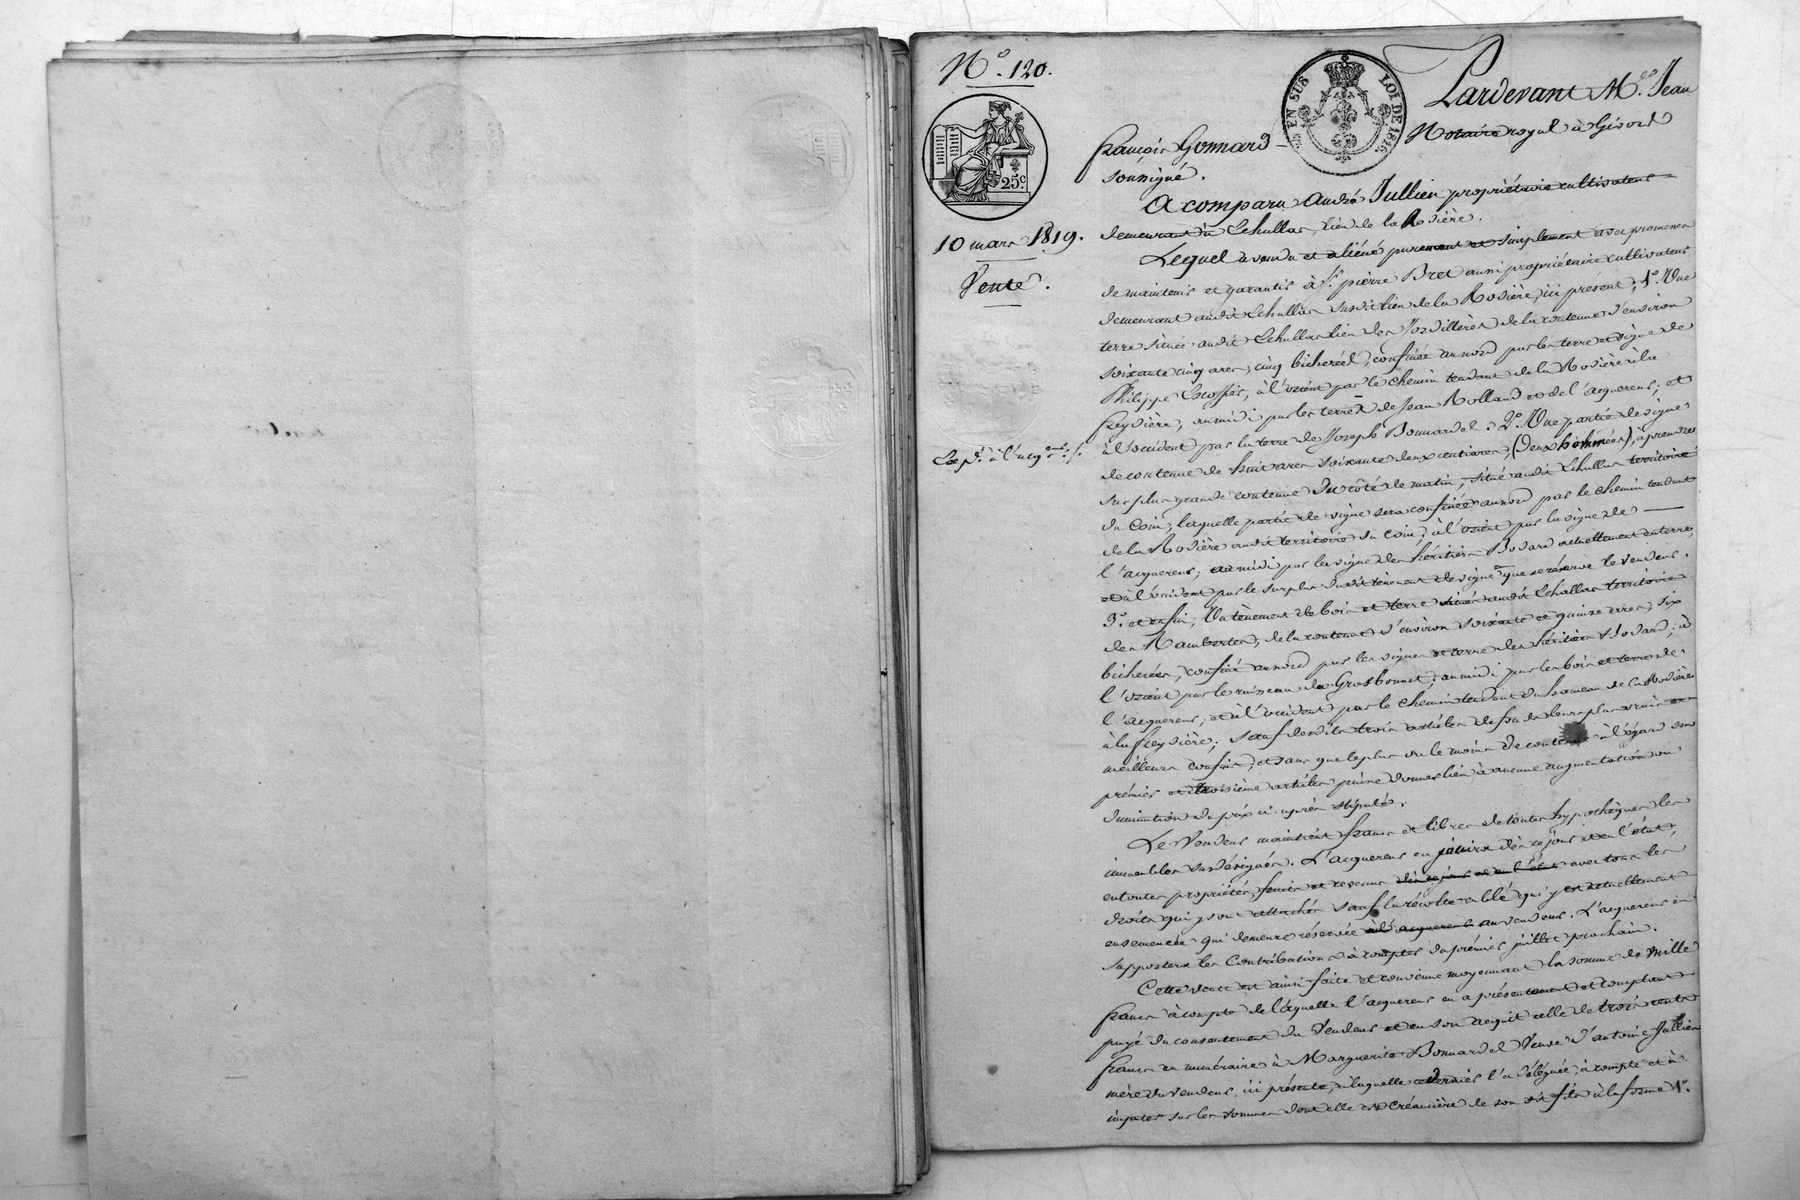 N.o 120.
25 EN SUS LOI DE 1816
25c
10 mars 1819.
Vente.
Exp.on à l'acq.
Pardevant M.e Jean
françois Gonnard Notaire royal à Givors
soussigné.
A comparu André Jullien propriétaire cultivateur
demeurant à Echallas, lieu de la Rodière.
Lequel a vendu et aliéné purement et simplement avec promesse
de maintenir et garantir à S.r pierre Bret aussi propriétaire cultivateur
demeurant audit Echallas susdit lieu de la Rodière, ici présent; 1.o Une
terre située audit Echallas lieu des de la contenue d'environ
soixante cinq ares, cinq bicherées, confinée au nord par les terre et vigne de
Philippe à l'orient par le chemin tendant de la Rodière à la
freydière, au midi par les terres de Jean Rolland et de l'acquereur; et
à l'occident par la terre de Joseph Bonnardel. 2.o Une partie de vigne
de contenue de huit ares soixante deux centiares, (deux hommées), à prendre
sur plus grande contenue du côté de matin, situé audit Echallas territoire
du Coin, laquelle partie de vigne sera confinée au nord par le chemin tendant
de la Rodière audit territoire du Coin; à l'orient par la vigne de
l'acquereur; au midi par la vigne des héritiers Bodard actuellement en terre,
et à l'occident par le surplus dudit tènement de vigne que se réserve le vendeur.
3.o et enfin, Un tènement de bois et terre situé audit Echallas territoire
des Rambertes, de la contenue d'environ soixante et quinze ares, six
bicherées, confiné au nord par les vigne et terre des héritiers Bodard; à
l'orient par le ruisseau de Grosbonnet; au midi par les bois et terre de
l'acquereur; et à l'occident par le chemin tendant du hameau de la Rodière
à la freydière; sauf desdits trois articles de fonds leurs plus vrais et
meilleurs confins, et sans que le plus ou le moins de contenue à l'égard des
premier et troisième articles puisse donner lieu à aucune augmentation ou
diminution du prix ci-après stipulé.
Le Vendeur maintient francs et libres de toutes hypothèques les
immeubles susdésignés. L'acquereur en jouira dès ce jour et en l'état,
en toutes propriétés, fruits et revenus dès ce jour et en l'état avec tous les
droits qui y sont attachés sauf la récolte en blé qui y est actuellement
ensemencée qui demeure réservée à l'acquereur au vendeur. L'acquereur en
supportera les Contributions à compter du premier juillet prochain.
Cette vente est ainsi faite et convenue moyennant la somme de mille
francs à compte de laquelle l'acquereur en a présentement et comptant
payé du consentement du Vendeur et en son acquit celle de trois cents
francs en numéraire à Marguerite Bonnardel Veuve d'antoine Jullien
mère du vendeur, ici présente, à laquelle ce dernier l'a déléguée, à compte et à
imputer sur les sommes dont elle est créancière de son dit fils à la forme 1.o